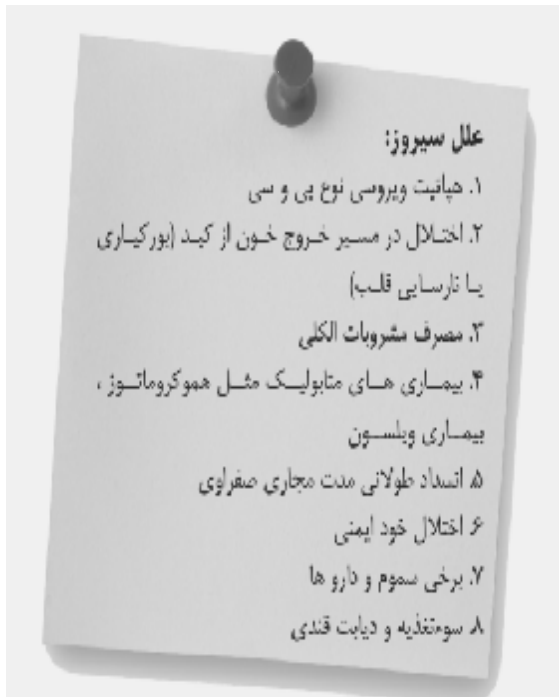 علل سیروز:
۱. هپاتیت ویروسی نوع بی و سی
۲. اختلال در مسیر خروج خون از کبد (بورکیاری
یا نارسایی قلب)
۳. مصرف مشروبات الکلی
۴. بیماری های متابولیک مثل هموکروماتوز ،
بیماری ویلسون
۵. انسداد طولانی مدت مجاری صفراوی
۶. اختلال خود ایمنی
۷. برخی سموم و دارو ها
۸. سوءتغذیه و دیابت قندی